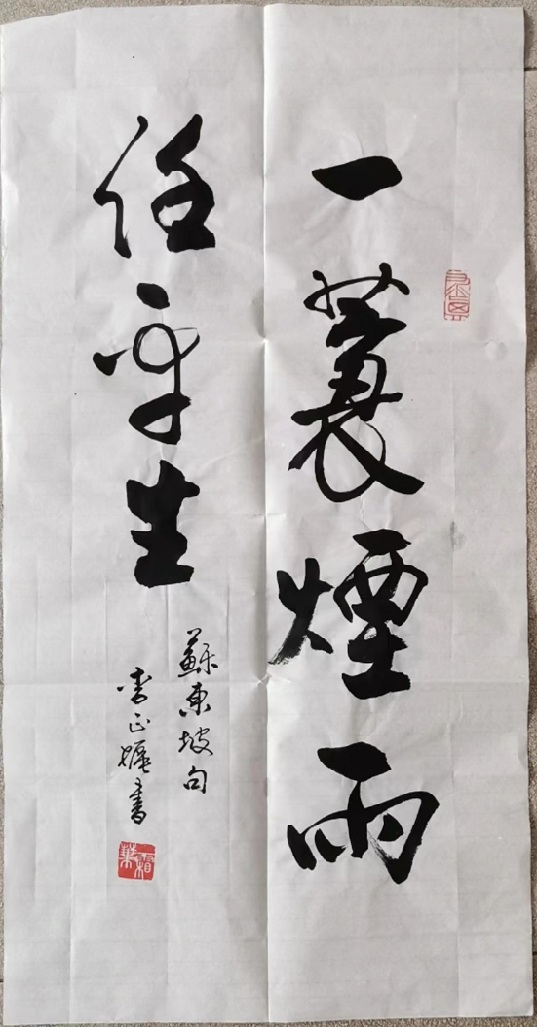 一蓑煙雨
任平生
蘇東坡句
李正嫗書
霜葉